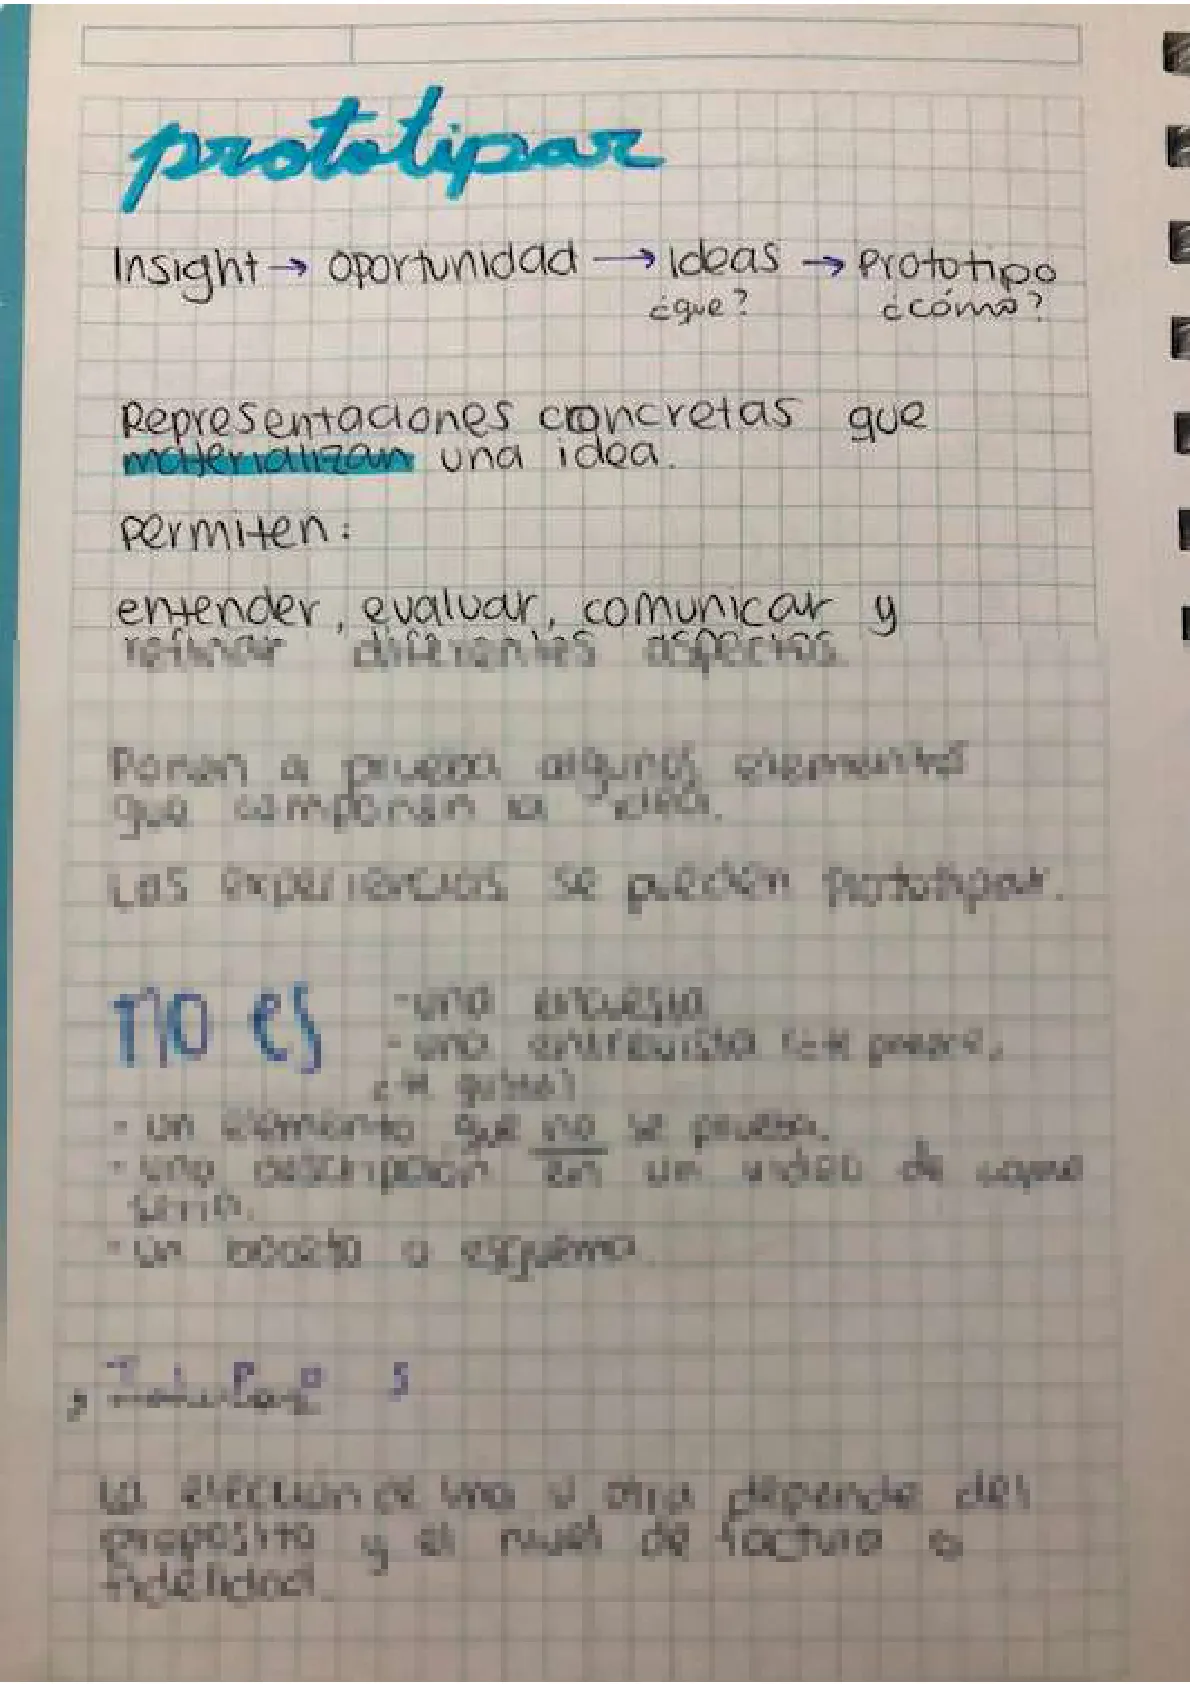 prototipar
Insight → oportunidad → Ideas → Prototipo
¿que? ¿cómo?
Representaciones concretas que
materializan una idea.
Permiten:
entender, evaluar, comunicar y
refinar diferentes aspectos.
Ponen a prueba algunos elementos
que componen la idea.
Las experiencias se pueden prototipar.
no es - una encuesta
- una entrevista
- un elemento que no se prueba.
- una descripción en un video de como
sería.
- un boceto o esquema.
La elección de una u otra depende del
proposito y el nivel de factura o
fidelidad.